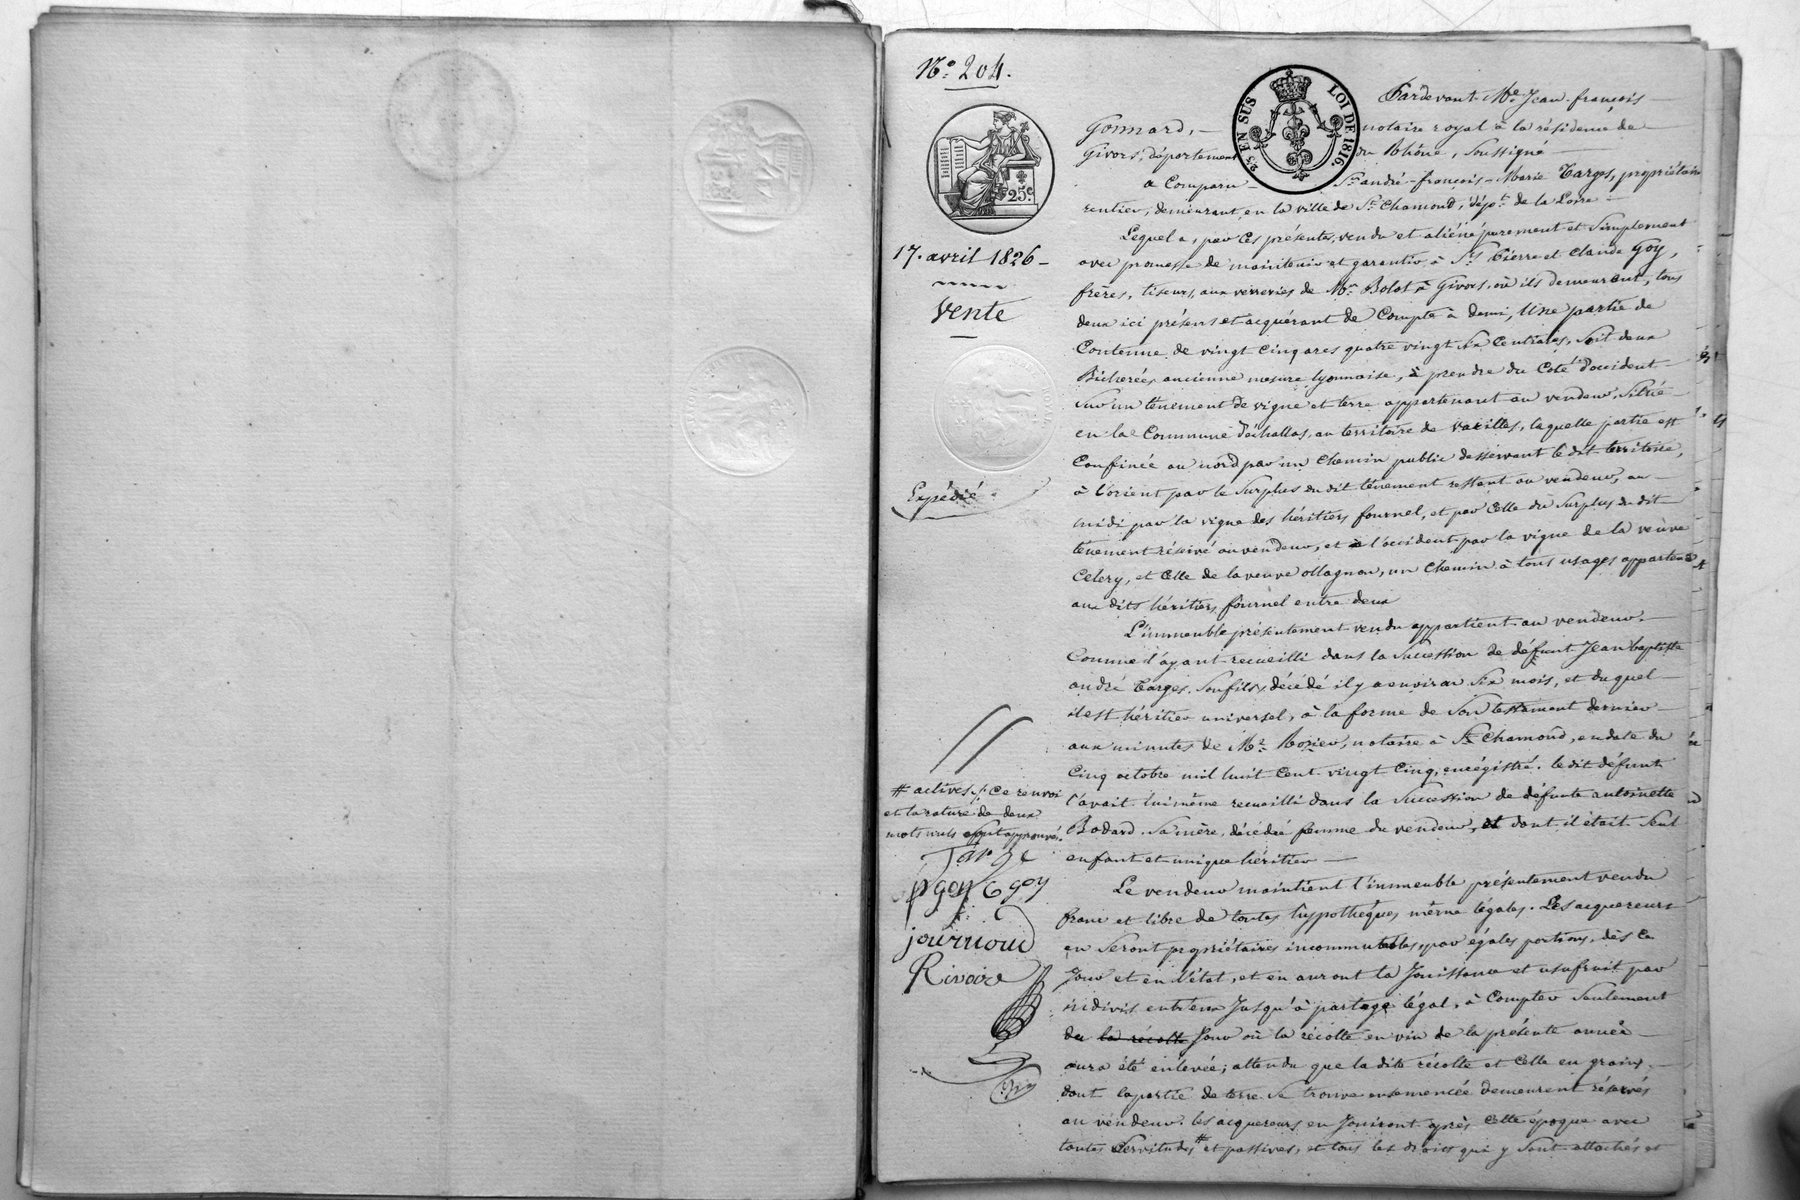 N.o 204.
25.c
17. avril 1826 -
Vente
Expédié
25 EN SUS LOI DE 1816.
Pardevant Me. Jean-françois
Gonnard, - notaire royal à la résidence de
Givors, département du Rhône, Soussigné
a Comparu - Sr. andré-françois-Marie Targes, propriétaire
rentier, demeurant en la ville de St. Chamond, dépt. de la Loire -
Lequel a, par Ces présentes, vendu et aliéné purement et Simplement
avec promesse de maintenir et garantir, à Srs. Pierre et Claude Goy,
frères, tiseurs, aux verreries de Mr. Bolot à Givors, où ils demeurent, tous
deux ici présens et acquérant de Compte à demi, Une partie de
Contenue de vingt Cinq ares quatre vingt Six Centiares, Soit deux
Bicherées ancienne mesure lyonnaise, à prendre du Coté d'occident
Sur un tènement de vigne et terre appartenant au vendeur, Situé
en la Commune d'échallas, au territoire de varilles, laquelle partie est
Confinée au nord par un Chemin public desservant le dit territoire,
à l'orient par le Surplus du dit tènement restant au vendeur, au
midi par la vigne des héritiers fournel, et par Celle du Surplus du dit
tènement réservé au vendeur, et à l'occident par la vigne de la veuve
Celery, et Celle de la veuve ollagnon, un Chemin à tous usages appartenant
aux dits héritiers fournel entre deux
L'immeuble présentement vendu appartient au vendeur,
Comme l'ayant recueilli dans la Succession de défunt Jean baptiste
andré Targes, Son fils, décédé il y a environ Six mois, et duquel
il est héritier universel, à la forme de Son testament dernier
aux minutes de Me. Rozier, notaire à St. Chamond, en date du
Cinq octobre mil huit Cent vingt Cinq, enrégistré. le dit défunt
l'avait lui même recueilli dans la Succession de défunte antoinette
Bodard Sa mère, décédée femme du vendeur, et dont il était Seul
enfant et unique héritier —
Le vendeur maintient l'immeuble présentement vendu
franc et libre de toutes hypothèques même légales. Les acquereurs
en Seront propriétaires incommutables, par égales portions, dès Ce
Jour et en l'état, et en auront la Jouissance et usufruit par
indivis entr'eux Jusqu'à partage légal, à Compter Seulement
du la récolte Jour où la récolte en vin de la présente année
aura été enlevée; attendu que la dite récolte et Celle en grains
dont la partie de terre Se trouve ensemencée demeurent réservés
au vendeur. les acquereurs en Jouiront après Cette époque avec
toutes Servitudes # et passives, et tous les droits qui y Sont attachés et
# actives ./. Ce renvoi
et la rature de deux
mots nuls approuvés.
Targe
pgoy C goy
journoud
Rivoire